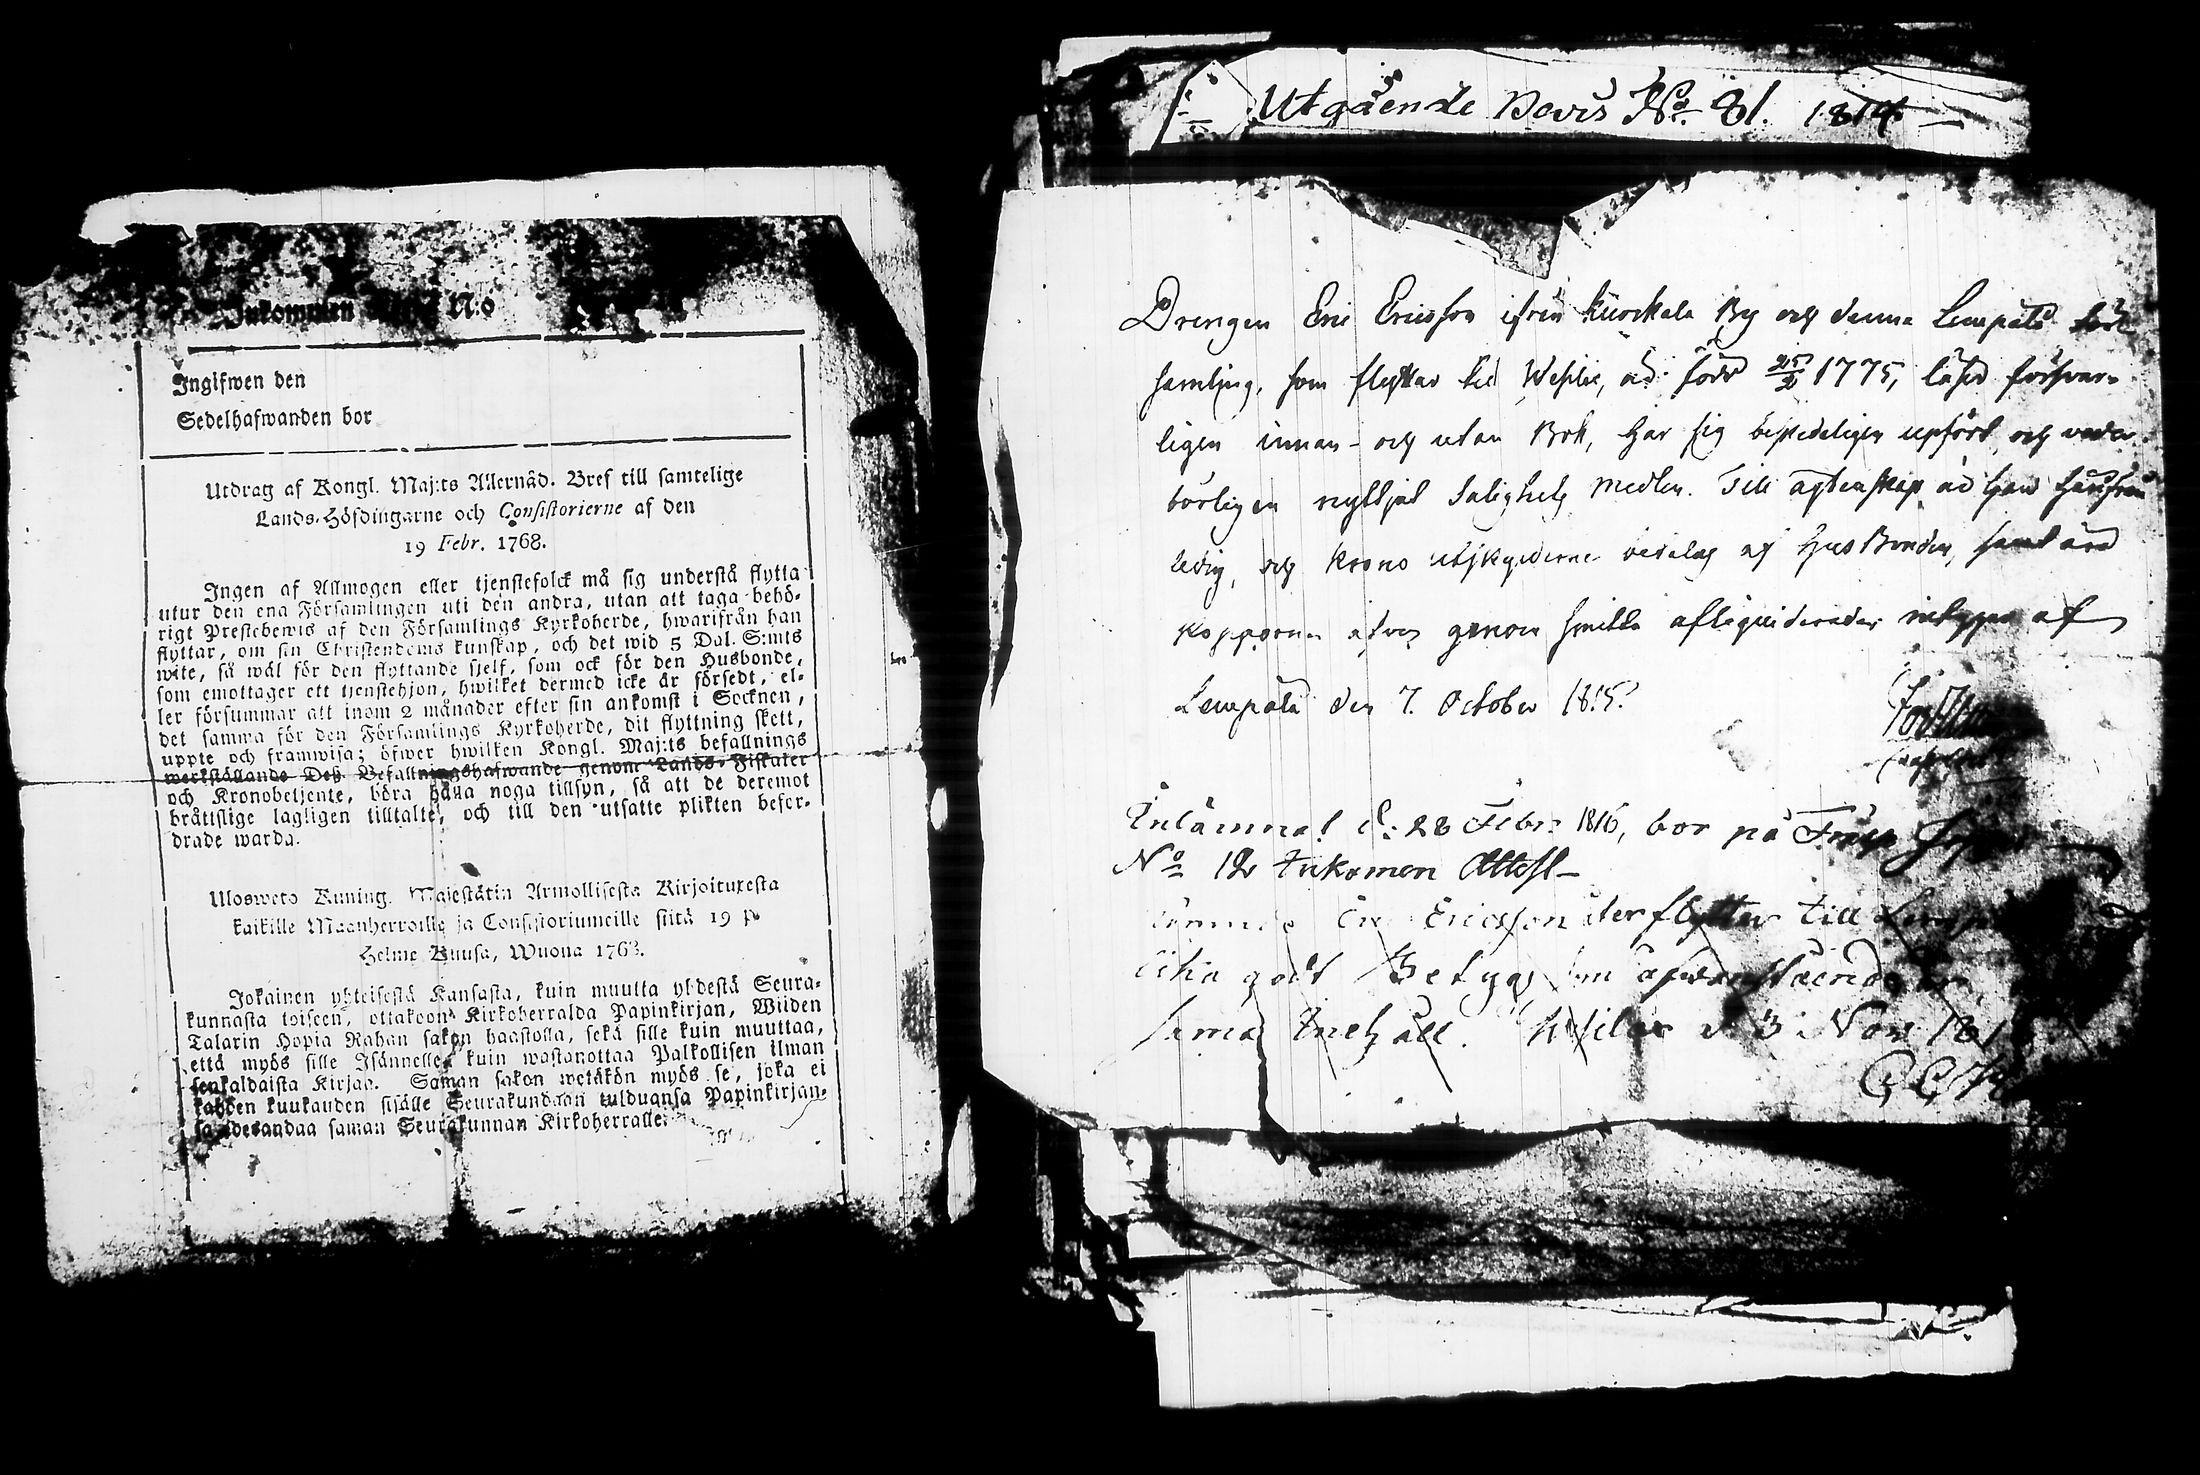 Inkommen N:o
Ingifwen den
Sedelhafwanden bor
Utdrag af Kongl. Maj:ts Allernåd. Bref till samtelige
Lands-Höfdingarne och Consistorierne af den
19 Febr. 1768.
Ingen af Allmogen eller tjenstefolck må sig understå flytta
utur den ena Församlingen uti den andra, utan att taga behö-
rigt Prestebewis af den Församlings Kyrkoherde, hwarifrån han
flyttar, om sin Christendoms kunskap, och det wid 5 Dal. S:mts
wite, så wäl för den flyttande sjelf, som ock för den Husbonde,
som emottager ett tjenstehjon, hwilket dermed icke är försedt, el-
ler försummar att inom 2 månader efter sin ankomst i Socknen,
det samma för den Församlings Kyrkoherde, dit flyttning skett,
uppte och framwisa; öfwer hwilken Kongl. Maj:ts befallnings
werkställande Deß Befallningshafwande genom Lands-Fiskaler
och Kronobetjente, böra hålla noga tillsyn, så att de deremot
bråttslige lagligen tilltalte, och till den utsatte plikten befor-
drade warda.
Uloswets Kuning. Majestätin Armollisesta Kirjoituxesta
kaikille Maanherroille ja Consistoriumeille siitä 19 p.
Helme Kuusa, Wuona 1768.
Jokainen yhteisestä Kansasta, kuin muutta yhdestä Seura-
kunnasta toiseen, ottakoon Kirkoherralda Papinkirjan, Wiiden
Talarin Hopia Rahan sakon haastolla, sekä sille kuin muuttaa,
että myös sille Isännelle, kuin wastanottaa Palkollisen ilman
senkaldaista Kirjaa. Saman sakon wetäkön myös se, joka ei
kahden kuukauden sisälle Seurakundaan tulduansa Papinkirjan-
sa edesandaa saman Seurakunnan Kirkoherralle.
Utgående Bevis No. 81. 1814
Drengen Eric Ericsson ifrån Kuorkala By och denna Lempälä För-
samling, som flyttar til Wesilax, är född 1775, läser försvar-
ligen innan- och utan Bok, har sig beskedeligen upfört, och veder-
börligen nyttjat Salighets Medlen. Till ägtenskap är han härifrån
ledig, och Krono utskyderne betalas af HusBonden, samt äro
Kopporna genom Smitta afliqviderade, intygar af
Lempälä den 7. October 1815.
Inlämnat d: 28 Febr: 1816, bor på
No 12 Inkomen Attest
Eric Ericsson återflyttar till
lika godt Betyg som
sama Inehåll. Wesilax d 3 Nov 181